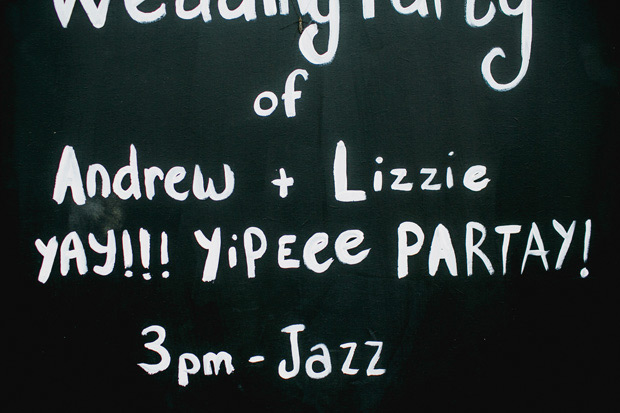 Wedding Party
of
Andrew + Lizzie
YAY!!! YiPEee PARTAY!
3pm - Jazz